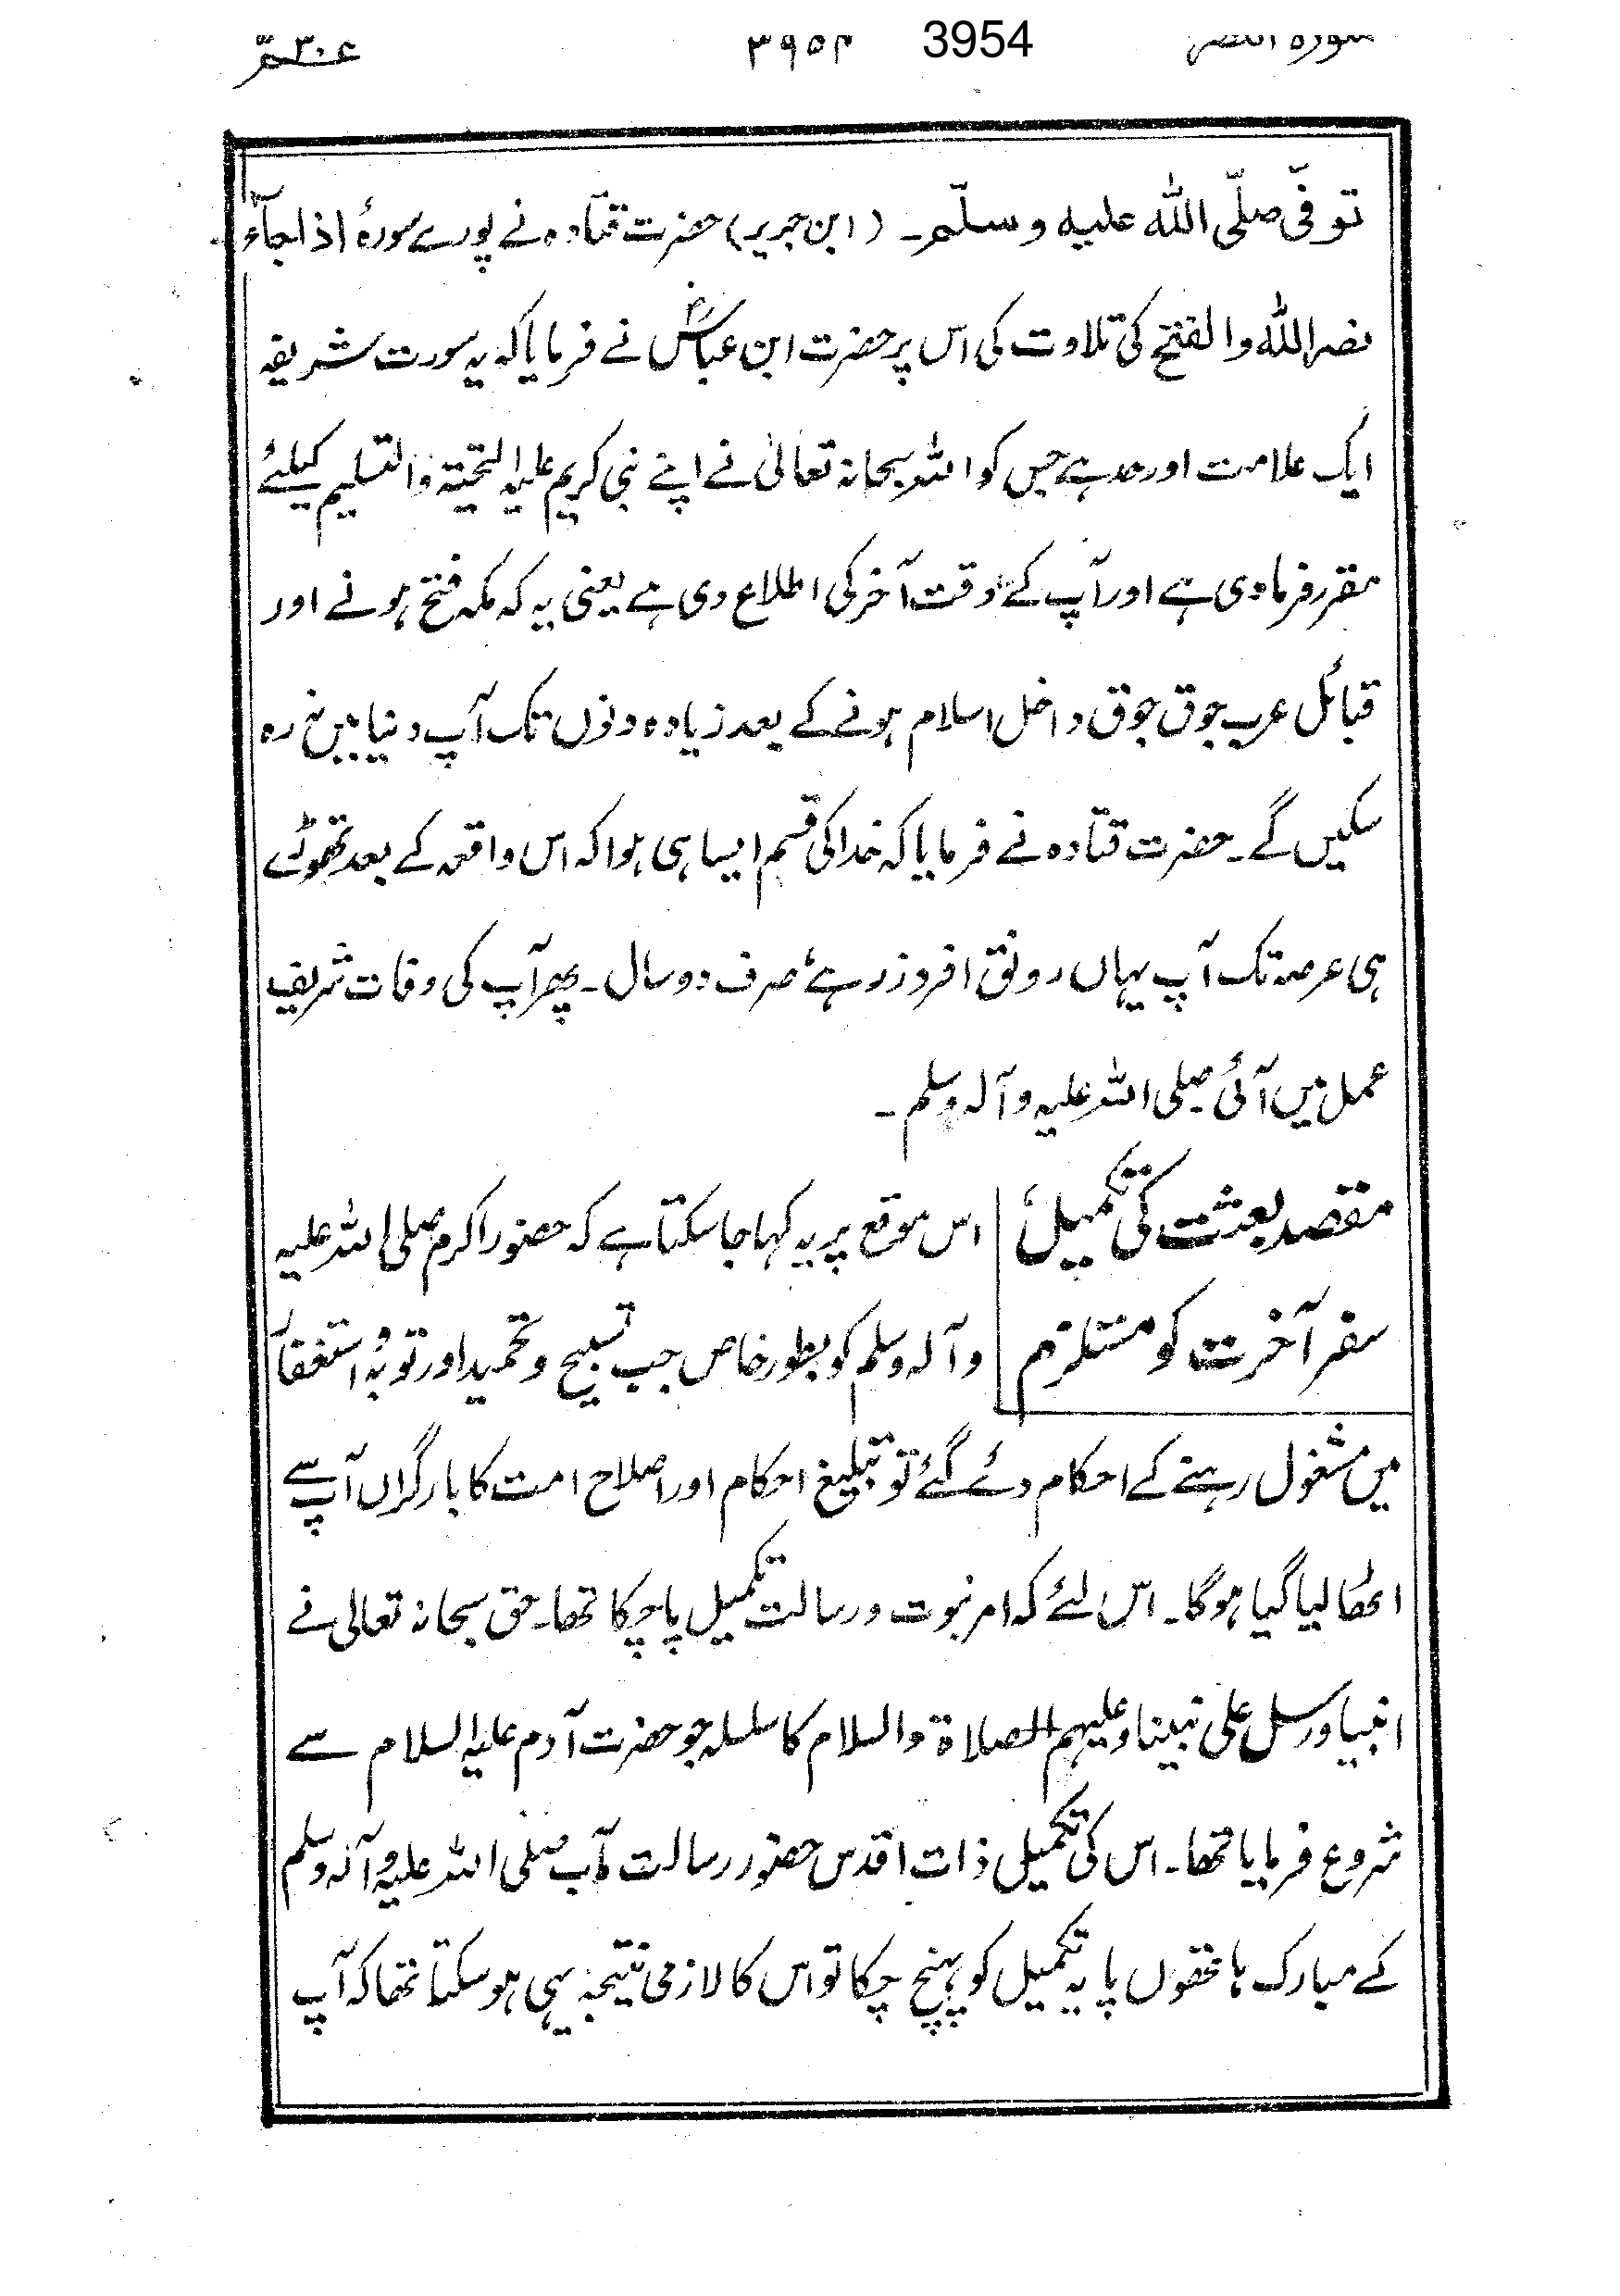 سورہ النصر 3954 ۳۹۵۴ عم ۳۰
توفّی صلّی اللّٰہ علیہ وسلّم۔ (ابن جریر) حضرت قتادہ نے پورے سورۂ اذا جآء
نصراللّٰہ والفتح کی تلاوت کی اس پر حضرت ابن عباسؓ نے فرمایا کہ یہ سورت شریفہ
ایک علامت اور حد ہے جس کو اللہ سبحانہ تعالیٰ نے اپنے نبی کریم علیہ التحیۃ والتسلیم کیلئے
مقرر فرمادی ہے اور آپ کے وقت آخر کی اطلاع دی ہے یعنی یہ کہ مکہ فتح ہونے اور
قبائل عرب جوق جوق داخل اسلام ہونے کے بعد زیادہ دنوں تک آپ دنیا میں نہ رہ
سکیں گے۔ حضرت قتادہ نے فرمایا کہ خدا کی قسم ایسا ہی ہوا کہ اس واقعہ کے بعد تھوڑے
ہی عرصہ تک آپ یہاں رونق افروز رہے صرف دو سال۔ پھر آپ کی وفات شریف
عمل میں آئی صلی اللہ علیہ وآلہ وسلم۔
مقصد بعثت کی تکمیل اس موقع پر یہ کہا جاسکتا ہے کہ حضور اکرم صلی اللہ علیہ
سفر آخرت کو مستلزم وآلہ وسلم کو بطور خاص جب تسبیح وتحمید اور توبہ و استغفار
میں مشغول رہنے کے احکام دئے گئے تو تبلیغ احکام اور اصلاح امت کا بار گراں آپ سے
اٹھا لیا گیا ہوگا۔ اس لئے کہ امر نبوت ورسالت تکمیل پاچکا تھا۔ حق سبحانہ تعالیٰ نے
انبیا ورسل علی نبینا وعلیہم الصلاۃ والسلام کا سلسلہ جو حضرت آدم علیہ السلام سے
شروع فرمایا تھا۔ اس کی تکمیل ذات اقدس حضور رسالت مآب صلی اللہ علیہ وآلہ وسلم
کے مبارک ہاتھوں پایہ تکمیل کو پہنچ چکا تو اس کا لازمی نتیجہ یہی ہوسکتا تھا کہ آپ